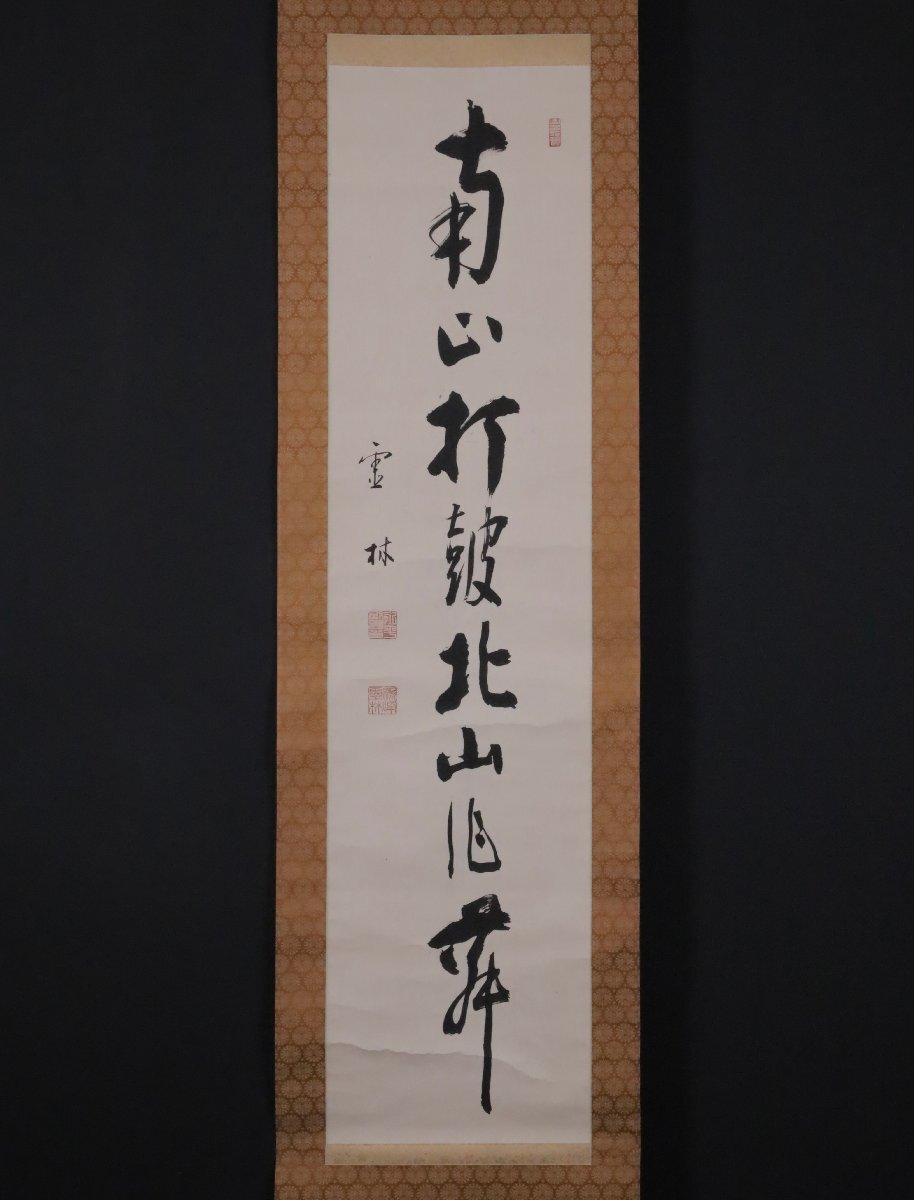 南山打鼓北山作舞
霊林